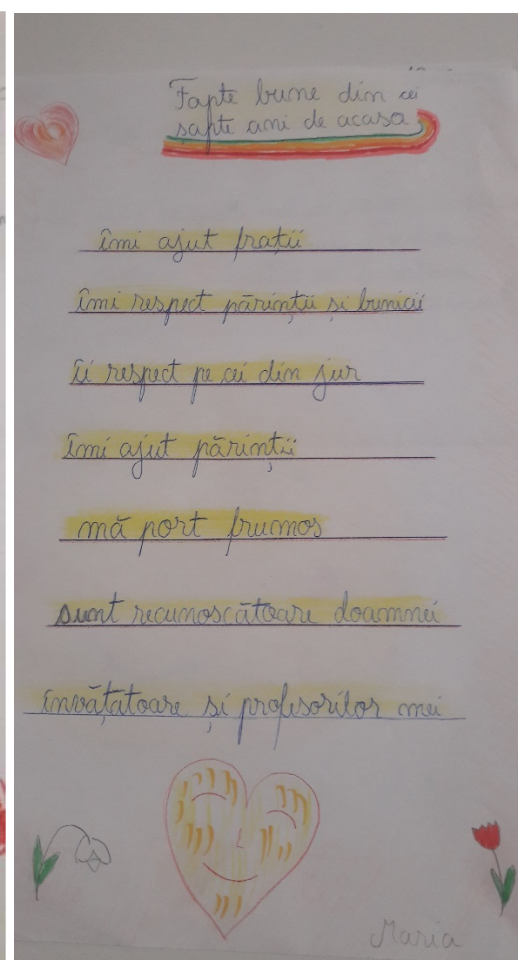 Fapte bune din cei
șapte ani de acasa
îmi ajut frații
îmi respect părinții și bunicii
îi respect pe cei din jur
îmi ajut părinții
mă port frumos
sunt recunoscătoare doamnei
învățatoare și profesorilor mei
Maria